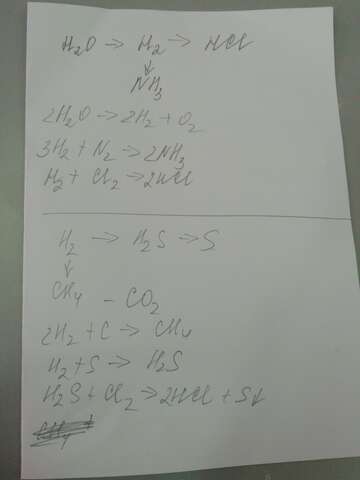 H₂O → H₂ → HCl
↓
NH₃
2H₂O → 2H₂ + O₂
3H₂ + N₂ → 2NH₃
H₂ + Cl₂ → 2HCl
H₂ → H₂S → S
↓
CH₄ – CO₂
2H₂ + C → CH₄
H₂ + S → H₂S
H₂S + Cl₂ → 2HCl + S↓